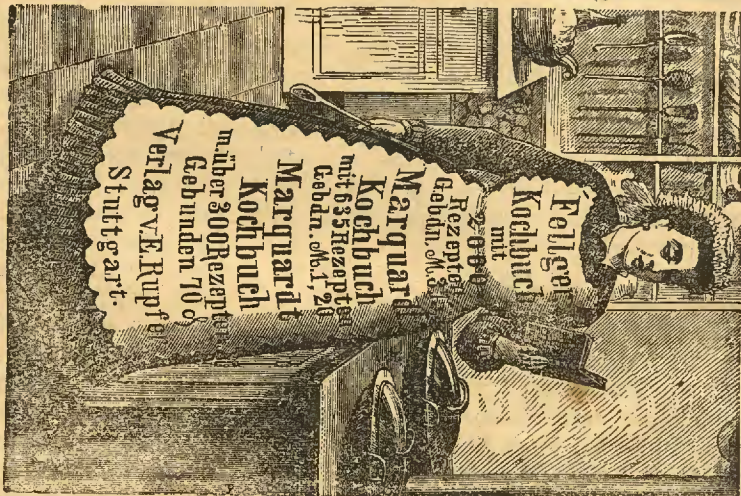 Fellger
Kochbuch
mit
2000
Rezepten
Gebdn. M. 3
Marquard
Kochbuch
mit 635 Rezepten
Gebdn. M. 1,20
Marquardt
Kochbuch
m. über 300 Rezepten
Gebunden 70 ₰
Verlag v. E. Rupfe
Stuttgart.